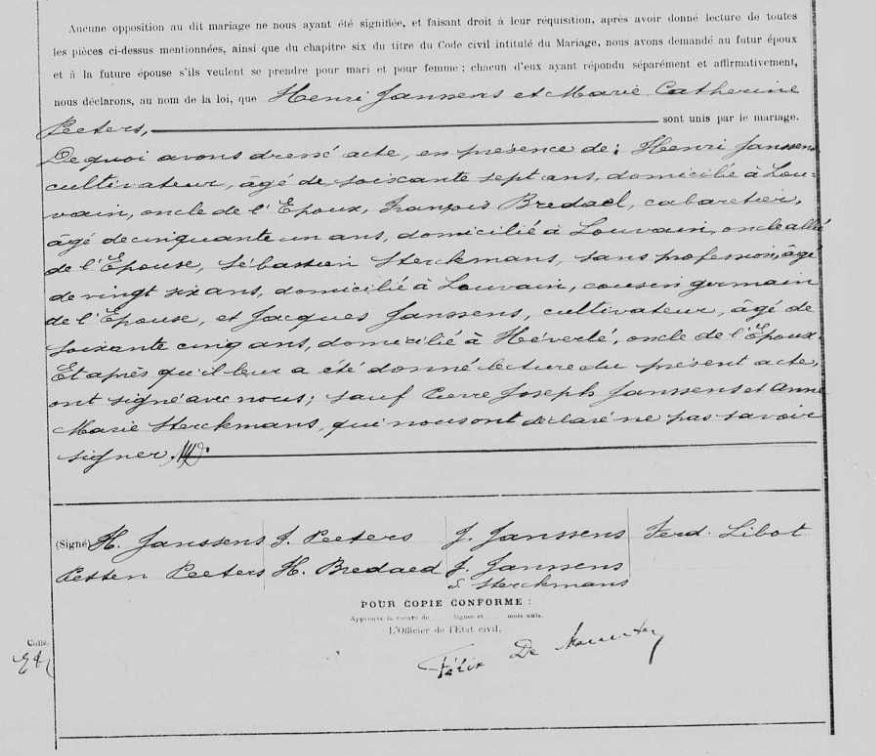 Aucune opposition au dit mariage ne nous ayant été signifiée, et faisant droit à leur réquisition, après avoir donné lecture de toutes
les pièces ci-dessus mentionnées, ainsi que du chapitre six du titre du Code civil intitulé du Mariage, nous avons demandé au futur époux
et à la future épouse s'ils veulent se prendre pour mari et pour femme ; chacun d'eux ayant répondu séparément et affirmativement,
nous déclarons, au nom de la loi, que Henri Janssens et Marie Catherine
Peeters, sont unis par le mariage.
De quoi avons dressé acte, en présence de: Henri Janssens
cultivateur, âgé de soixante sept ans, domicilié à Lou-
vain, oncle de l'Epoux, François Bredael, cabaretier,
âgé de cinquante un ans, domicilié à Louvain, oncle allié
de l'Epouse, Sébastien Sterckmans, sans profession, âgé
de vingt six ans, domicilié à Louvain, cousin germain
de l'Epouse, et Jacques Janssens, cultivateur, âgé de
soixante cinq ans, domicilié à Héverlé, oncle de l'Epoux.
Et après qu'il leur a été donné lecture du présent acte,
ont signé avec nous; sauf Pierre Joseph Janssens et Anne
Marie Sterckmans, qui nous ont déclaré ne pas savoir
signer.
(Signé) H. Janssens J. Peeters J. Janssens Ferd. Libot
Peeters H. Bredaed J. Janssens
S Sterckmans
POUR COPIE CONFORME :
L'Officier de l'Etat civil,
Félix De